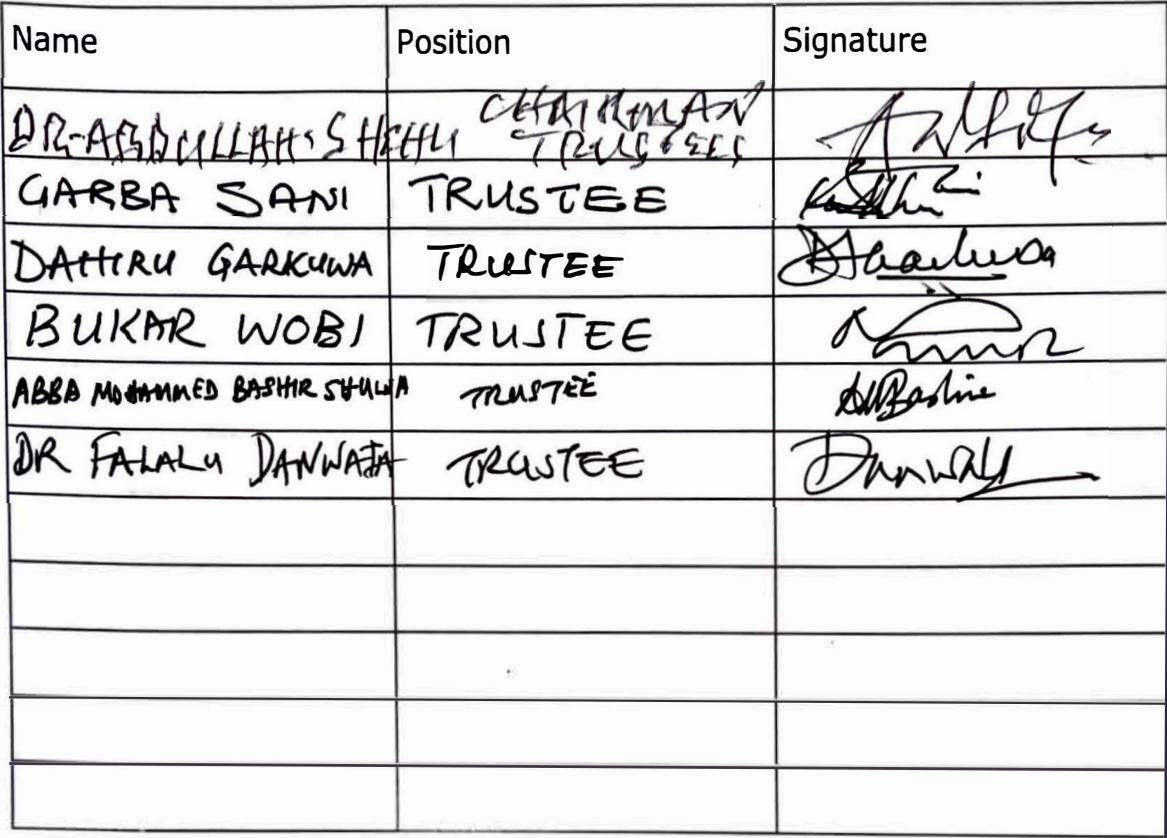 Name Position Signature
DR. ABDULLAHI SHEHU CHAIRMAN
TRUSTEES
GARBA SANI TRUSTEE
DAHIRU GARKUWA TRUSTEE
BUKAR WOBI TRUSTEE
ABBA MOHAMMED BASHIR SHUWA TRUSTEE
DR FALALU DANWAJA TRUSTEE